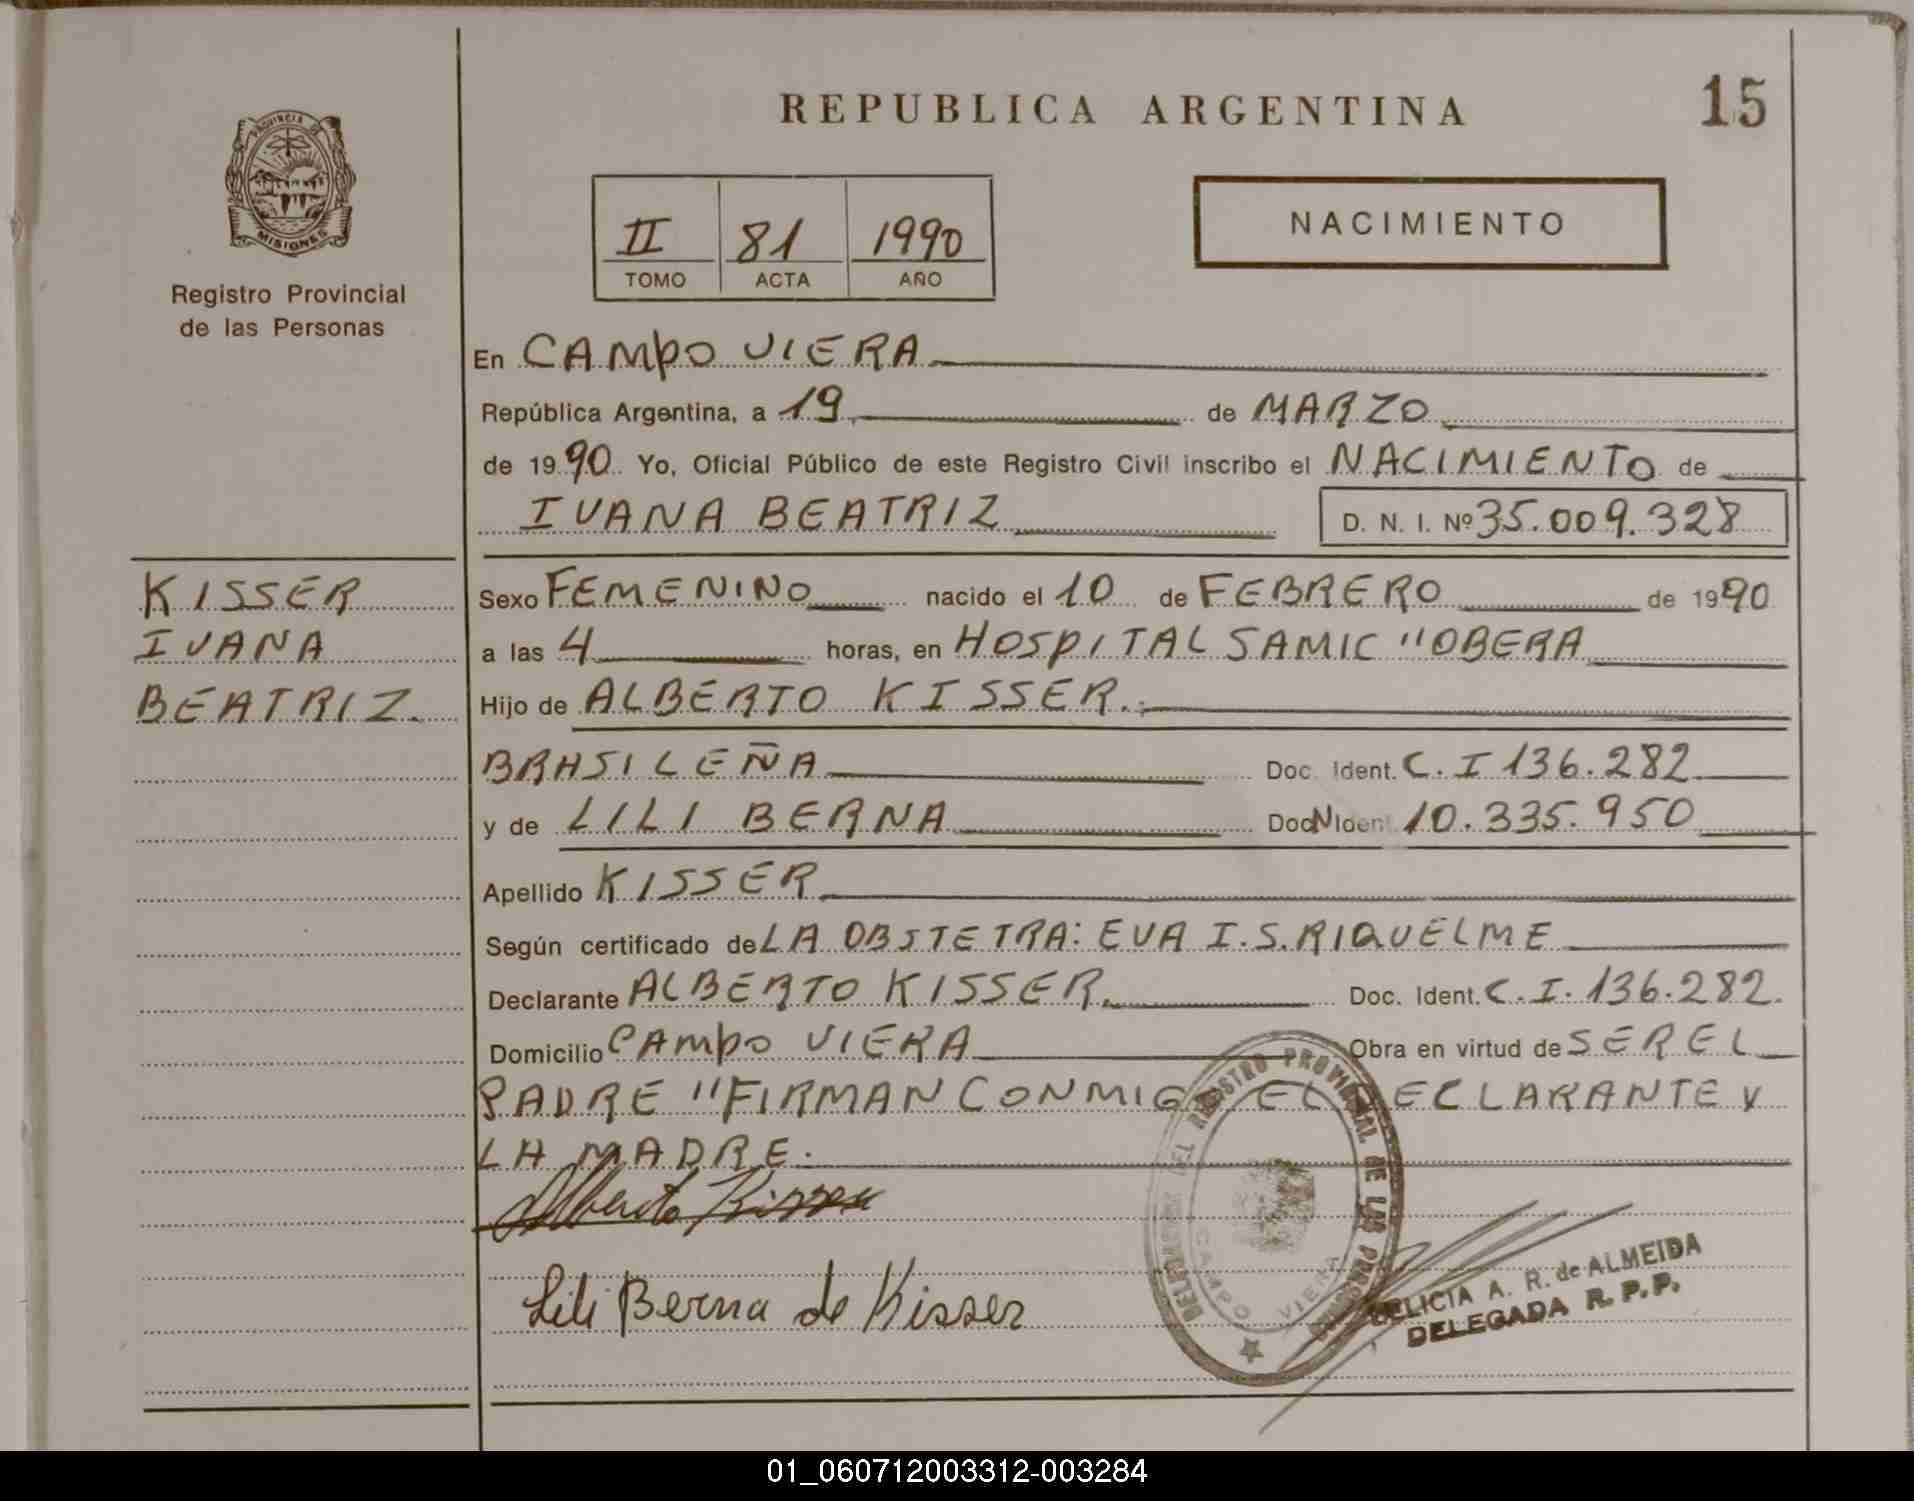 REPUBLICA ARGENTINA
15
PROVINCIA DE
MISIONES
Registro Provincial
de las Personas
II 81 1990
TOMO ACTA AÑO
NACIMIENTO
En CAMPO VIERA
República Argentina, a 19 de MARZO
de 1990 Yo, Oficial Público de este Registro Civil inscribo el NACIMIENTO de
IVANA BEATRIZ D. N. I. Nº 35.009.328
KISSER
IVANA
BEATRIZ.
Sexo FEMENINO nacido el 10 de FEBRERO de 1990
a las 4 horas, en HOSPITAL SAMIC "OBERA
Hijo de ALBERTO KISSER.
BRASILEÑA Doc. Ident. C. I 136.282
y de LILI BERNA Doc N Ident 10.335.950
Apellido KISSER
Según certificado de LA OBSTETRA: EVA I.S.RIQUELME
Declarante ALBERTO KISSER. Doc. Ident. C.I. 136.282.
Domicilio CAMPO VIERA Obra en virtud de SER EL
PADRE "FIRMAN CONMIGO EL DECLARANTE Y
LA MADRE.
Alberto Kisser
Lili Berna de Kisser
DELEGACION DEL REGISTRO PROVINCIAL DE LAS PERSONAS
CAMPO VIERA
A. R. de ALMEIDA
DELEGADA R. P. P.
01_060712003312-003284